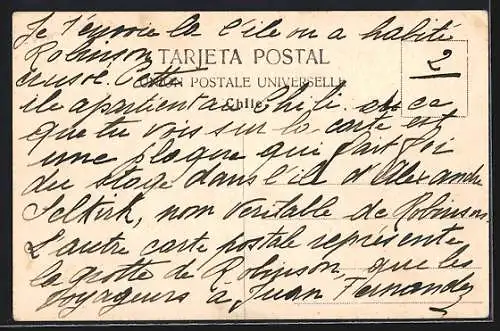 Je t'envoie la l'ile ou a habité
Robinson
TARJETA POSTAL
2
crusoé. Cette
UNION POSTALE UNIVERSELLE
ile apartient au Chili. ce
Chile
que tu vois sur la carte est
une plaque qui fait foi
du stage dans l'ile d'Alexandre
Selkirk, nom veritable de Robinson.
L'autre carte postale représente
la grotte de Robinson, que les
voyageurs à Juan Fernandez